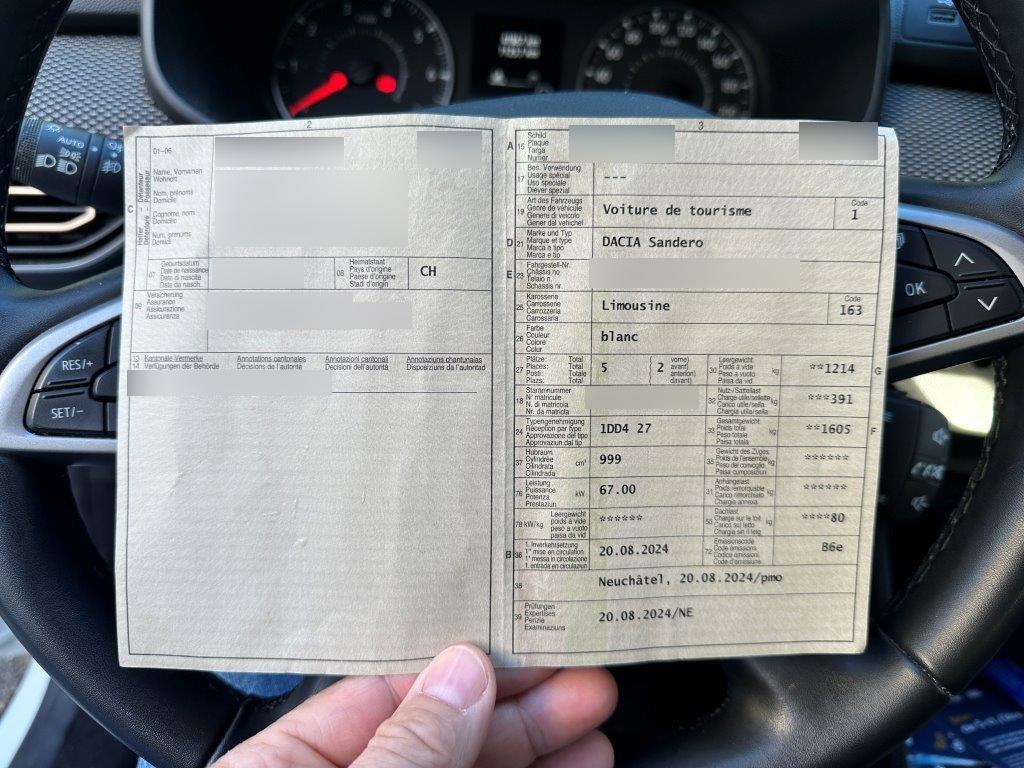 2
01-06
Halter
Détenteur
Detentore
Possessur
Name, Vornamen
Wohnort
Nom, prénoms
Domicile
Cognome, nomi
Domicilio
Num, prenums
Domicil
C
07
Geburtsdatum
Date de naissance
Data di nascita
Data da nasch.
08
Heimatstaat
Pays d'origine
Paese d'origine
Stadi d'origin
CH
09
Versicherung
Assurance
Assicurazione
Assicuranza
13
14
Kantonale Vermerke
Verfügungen der Behörde
Annotations cantonales
Décisions de l'autorité
Annotazioni cantonali
Decisioni dell'autorità
Annotaziuns chantunalas
Disposiziuns da l'autoritad
3
A 15
Schild
Plaque
Targa
Numer
17
Bes. Verwendung
Usage spécial
Uso speciale
Diever spezial
---
19
Art des Fahrzeugs
Genre de véhicule
Genere di veicolo
Gener dal vehichel
Voiture de tourisme
Code
1
D 21
Marke und Typ
Marque et type
Marca e tipo
Marca e tip
DACIA Sandero
E 23
Fahrgestell-Nr.
Châssis no
Telaio n.
Schassis nr.
25
Karosserie
Carrosserie
Carrozzeria
Carossaria
Limousine
Code
163
26
Farbe
Couleur
Colore
Colur
blanc
27
Plätze: Total
Places: Total
Posti: Totale
Plazs: Total
5
(2
vorne)
avant)
anteriori)
davant)
30
Leergewicht
Poids à vide
Peso a vuoto
Paisa da vid
kg
**1214
G
18
Stammnummer
N° matricule
N. di matricola
Nr. da matricla
32
Nutz-/Sattellast
Charge utile/sellette
Carico utile/sella
Chargia utila/sella
kg
***391
24
Typengenehmigung
Réception par type
Approvazione del tipo
Approvaziun dal tip
1DD4 27
33
Gesamtgewicht
Poids total
Peso totale
Paisa totala
kg
**1605
F
37
Hubraum
Cylindrée
Cilindrata
Cilindrada
cm³
999
35
Gewicht des Zuges
Poids de l'ensemble
Peso del convoglio
Paisa cumposiziun
kg
******
76
Leistung
Puissance
Potenza
Prestaziun
kW
67.00
31
Anhängelast
Poids remorquable
Carico rimorchiato
Chargia annexa
kg
******
78 kW/kg
Leergewicht
poids à vide
peso a vuoto
paisa da vid
******
55
Dachlast
Charge sur le toit
Carico sul tetto
Chargia sin il tetg
kg
****80
B 36
1. Inverkehrsetzung
1re mise en circulation
1a messa in circolazione
1. entrada en circulaziun
20.08.2024
72
Emissionscode
Code émissions
Codice emissioni
Code d'emissiuns
B6e
38
Neuchâtel, 20.08.2024/pmo
39
Prüfungen
Expertises
Perizie
Examinaziuns
20.08.2024/NE
AUTO
RES/+
SET/-
OK